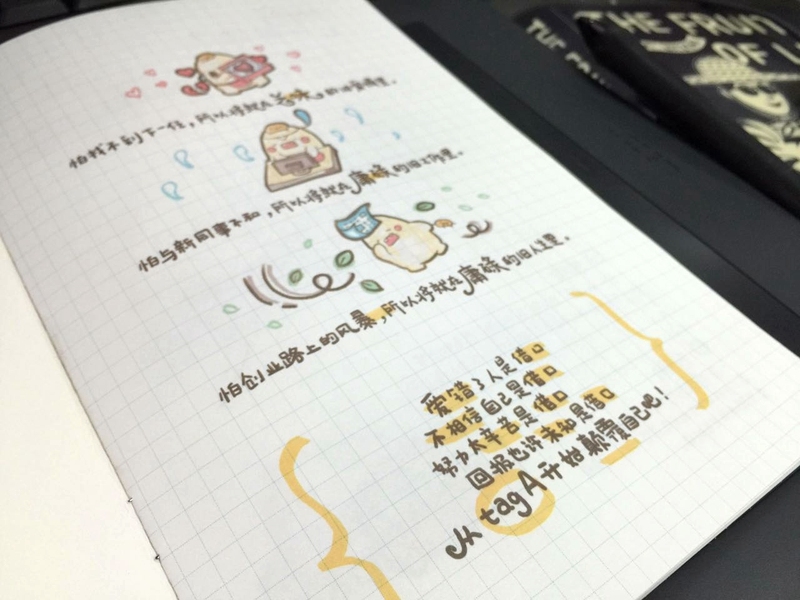 怕找不到下一任，所以将就在苟味的旧爱情里。
怕与新同事不和，所以将就在庸碌的旧工作里。
怕创业路上的风暴，所以将就在庸碌的旧人生里。
爱错了人是借口
不相信自己是借口
努力太辛苦是借口
回报也许未知是借口
从tagA开始颠覆自己吧！
THE FRUIT
OF